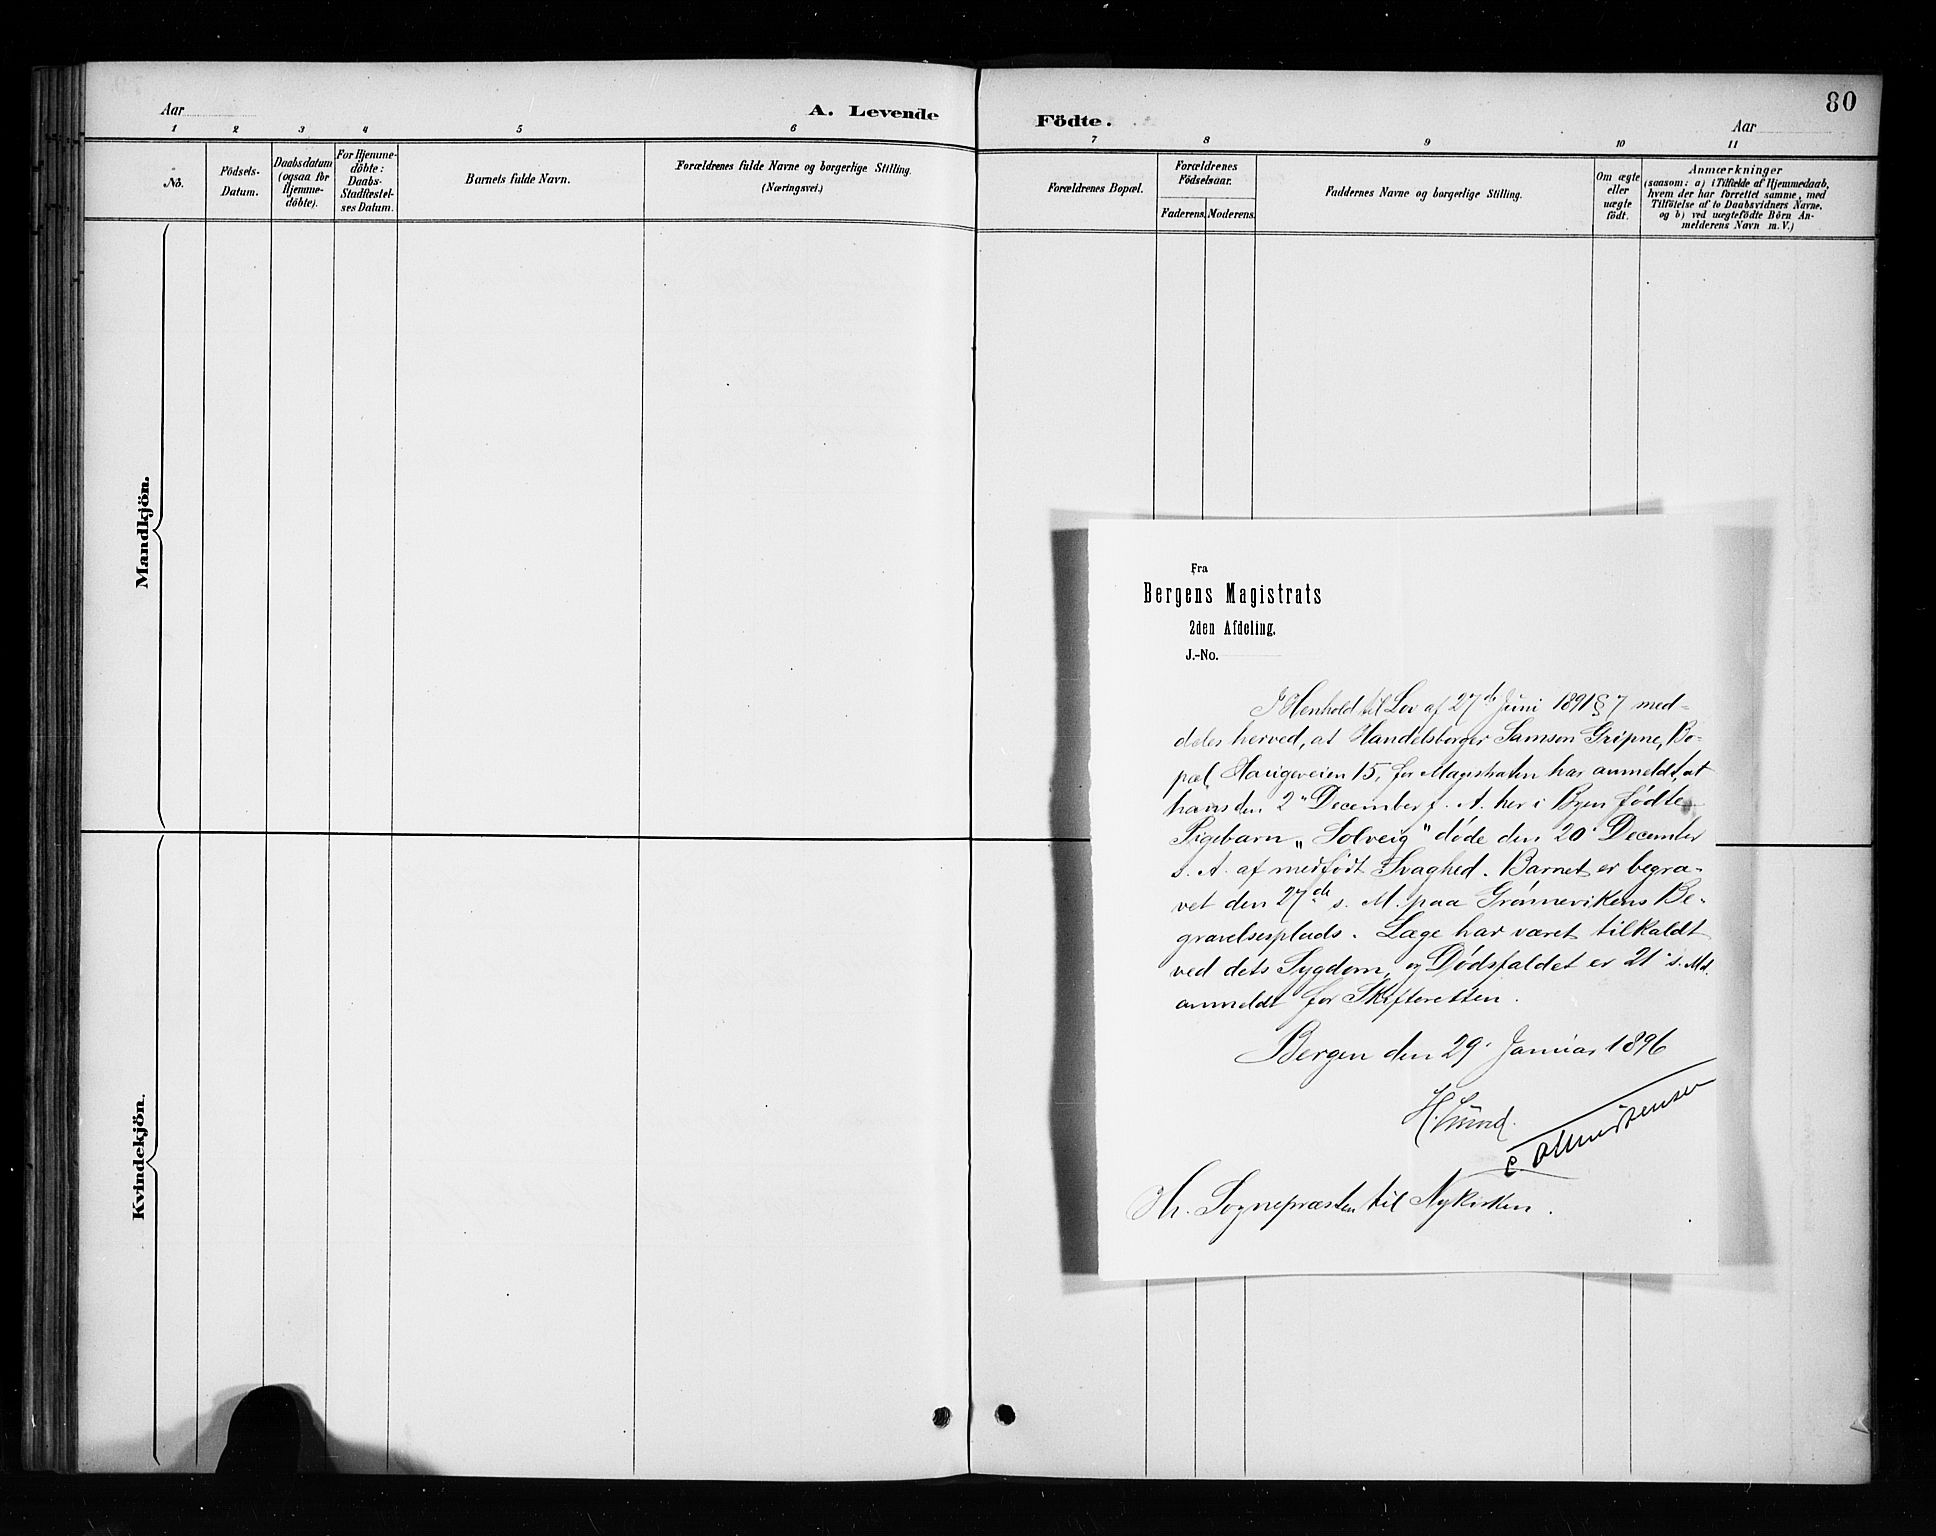 80
Aar
A. Levende
Födte.
Aar
1 2 3 4 5 6 7 8 9 10 11
No.
Födsels-
Datum.
Daabsdatum
(ogsaa for
Hjemme-
döbte).
For Hjemme-
döbte:
Daabs-
Stadfæstel-
ses Datum.
Barnets fulde Navn.
Forældrenes fulde Navne og borgerlige Stilling.
(Næringsvei.)
Forældrenes Bopæl.
Forældrenes
Födselsaar.
Faderens. Moderens.
Faddernes Navne og borgerlige Stilling.
Om ægte
eller
uægte
födt.
Anmærkninger
(saasom: a) i Tilfælde af Hjemmedaab,
hvem der har forrettet samme, med
Tilföielse af to Daabsvidners Navne,
og b) ved uægtefödte Börn An-
melderens Navn m.V.)
Mandkjön.
Kvindekjön.
Fra
Bergens Magistrats
2den Afdeling.
J.-No.
I Henhold til Lov af 27de Juni 1891 § 7 med-
deles herved, at Handelsborger Samson Gripne, Bo-
pæl Haugeveien 15, for Magistraten har anmeldt, at
hans den 2' December f. A. her i Byen fødte
Pigebarn „Solveig" døde den 20' December
s. A. af medfødt Svaghed. Barnet er begra-
vet den 27de s. M. paa Grønnevikens Be-
gravelsesplads. Læge har været tilkaldt
ved dets Sygdom, og Dødsfaldet er 21' s. Md.
anmeldt for Skifteretten.
Bergen den 29' Januar 1896
Hr. Sognepræsten til Nykirken.